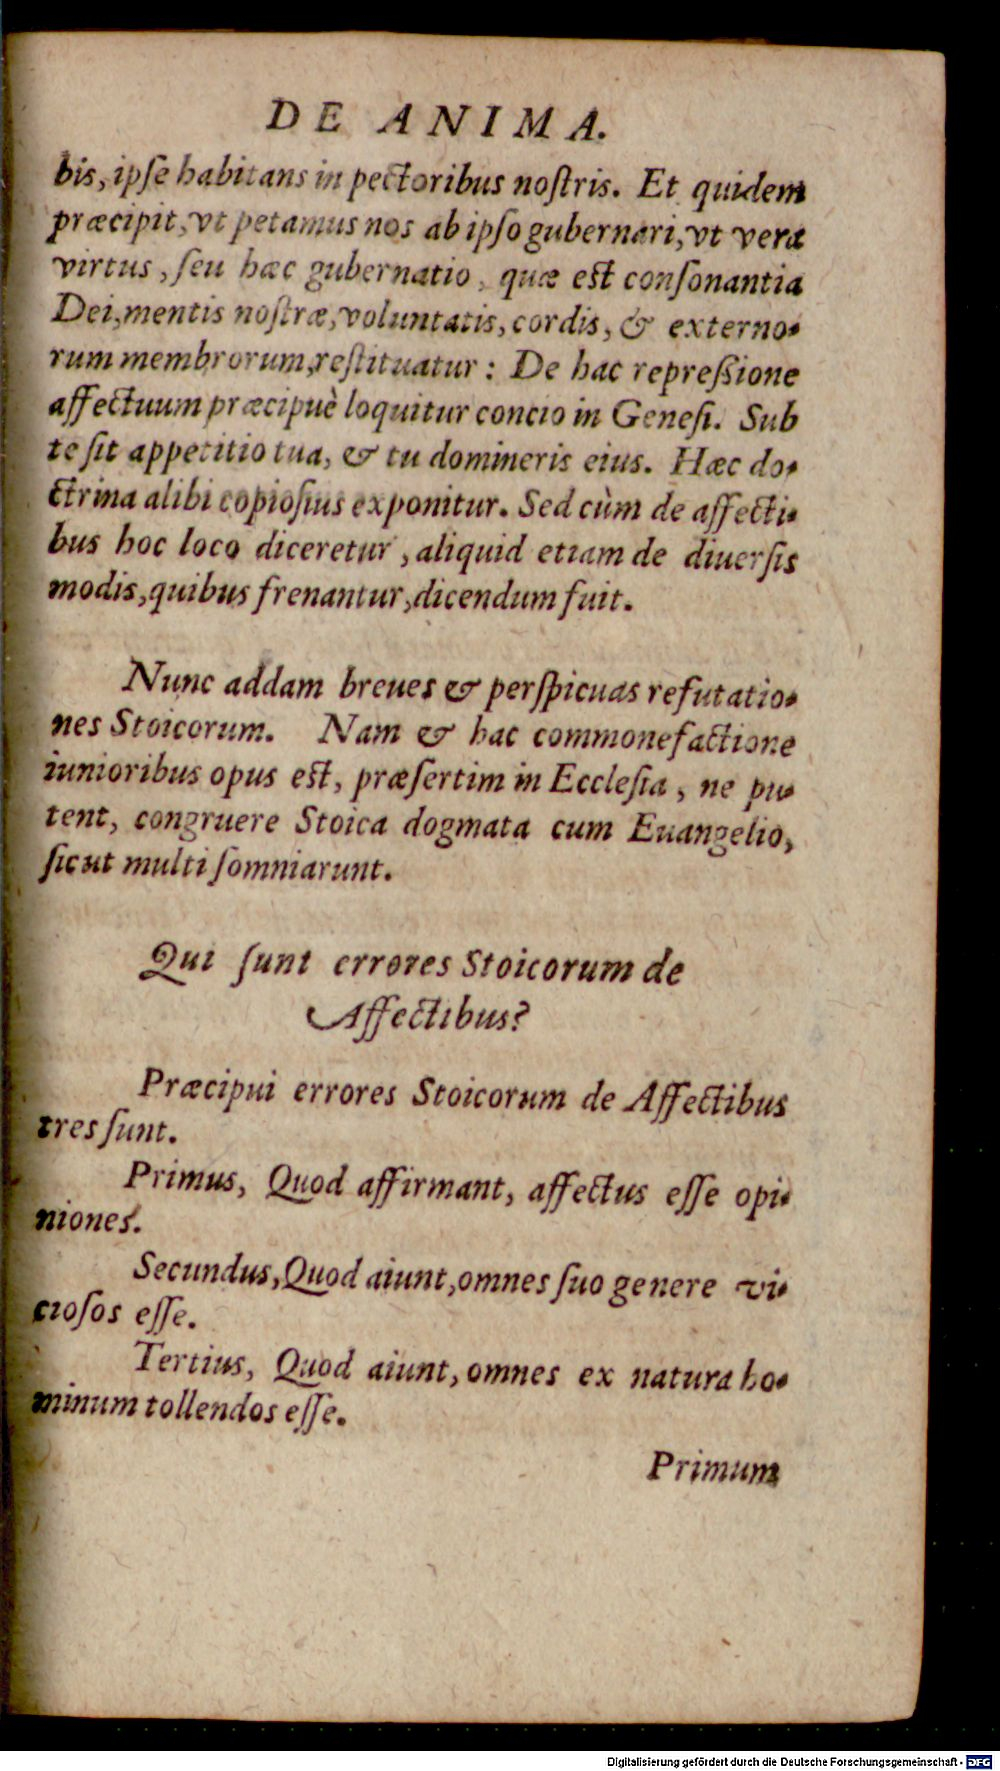 DE ANIMA.
bis, ipſe habitans in pectoribus noſtris. Et quidem
præcipit, vt petamus nos ab ipſo gubernari, vt vera
virtus, ſeu hæc gubernatio, quæ est conſonantia
Dei, mentis noſtræ, voluntatis, cordis, & externo-
rum membrorum, reſtituatur: De hac repreſsione
affectuum præcipuè loquitur concio in Geneſi. Sub
te ſit appetitio tua, & tu domineris eius. Hæc do-
ctrina alibi copioſius exponitur. Sed cùm de affecti-
bus hoc loco diceretur, aliquid etiam de diuerſis
modis, quibus frenantur, dicendum fuit.
Nunc addam breues & perſpicuas refutatio-
nes Stoicorum. Nam & hac commonefactione
iunioribus opus est, præſertim in Eccleſia, ne pu-
tent, congruere Stoica dogmata cum Euangelio,
ſicut multi ſomniarunt.
Qui ſunt errores Stoicorum de
Affectibus?
Præcipui errores Stoicorum de Affectibus
tres ſunt.
Primus, Quod affirmant, affectus eſſe opi-
niones.
Secundus, Quod aiunt, omnes ſuo genere vi-
cioſos eſſe.
Tertius, Quod aiunt, omnes ex natura ho-
minum tollendos eſſe.
Primum
Digitalisierung gefördert durch die Deutsche Forschungsgemeinschaft - DFG